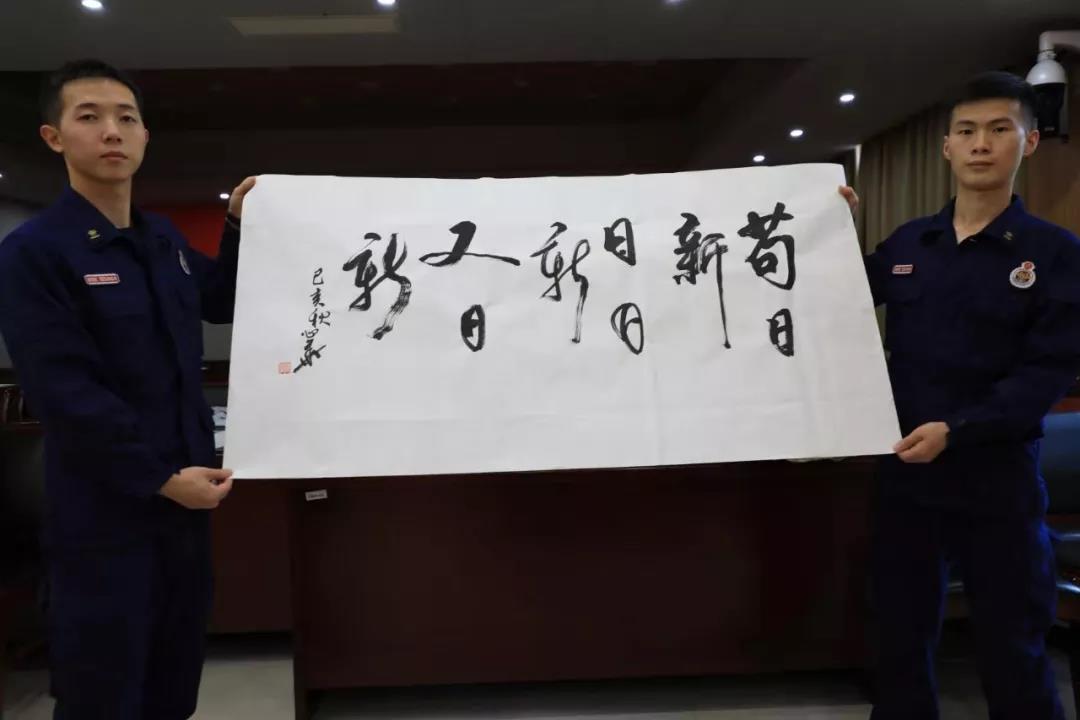 苟日
新
日日
新
又日
新
己亥秋